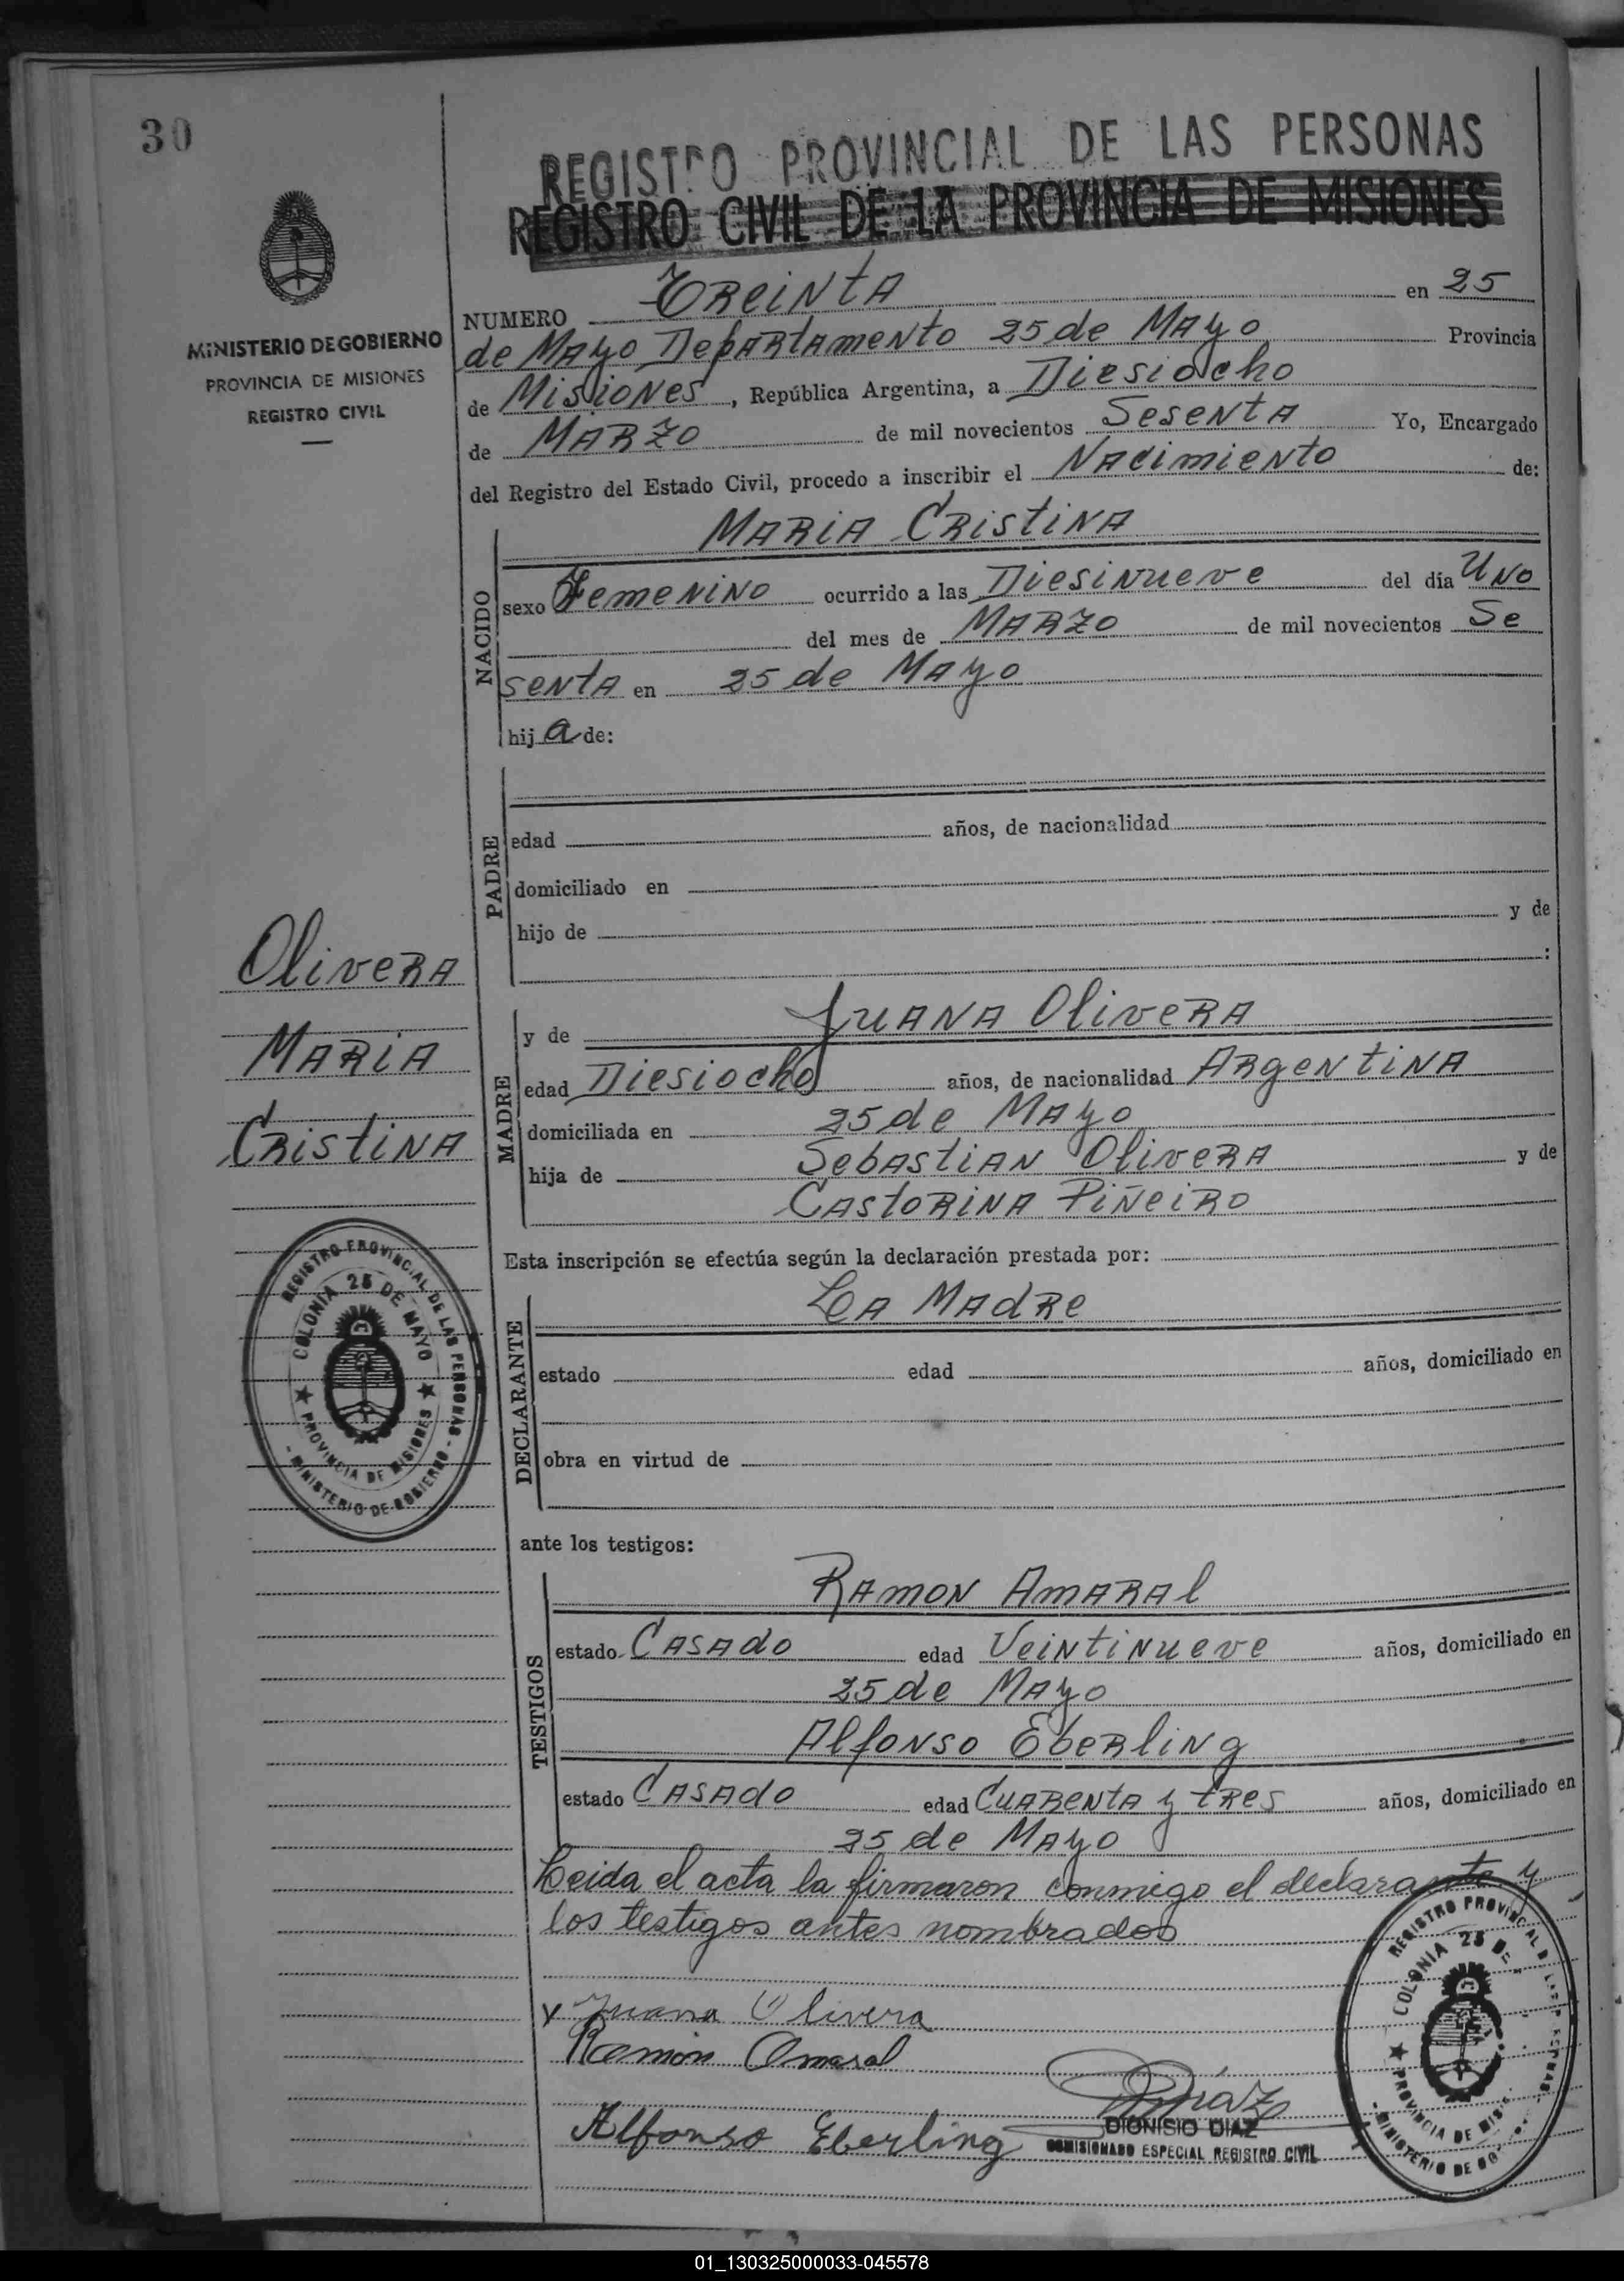 30
REGISTRO PROVINCIAL DE LAS PERSONAS
REGISTRO CIVIL DE LA PROVINCIA DE MISIONES
MINISTERIO DE GOBIERNO
PROVINCIA DE MISIONES
REGISTRO CIVIL
NUMERO Treinta en 25
de Mayo Departamento 25 de Mayo Provincia
de Misiones, República Argentina, a Diesiocho
de Marzo de mil novecientos Sesenta Yo, Encargado
del Registro del Estado Civil, procedo a inscribir el Nacimiento de:
NACIDO
Maria Cristina
sexo Femenino ocurrido a las Diesinueve del día Uno
del mes de Marzo de mil novecientos Se
senta en 25 de Mayo
hija de:
PADRE
edad años, de nacionalidad
domiciliado en
hijo de y de
:
Olivera
Maria
Cristina
MADRE
y de Juana Olivera
edad Diesiocho años, de nacionalidad Argentina
domiciliada en 25 de Mayo
hija de Sebastian Olivera y de
Castorina Piñeiro
Esta inscripción se efectúa según la declaración prestada por:
DECLARANTE
La Madre
estado edad años, domiciliado en
obra en virtud de
REGISTRO PROVINCIAL DE LAS PERSONAS - MINISTERIO DE GOBIERNO -
COLONIA 25 DE MAYO
★ PROVINCIA DE MISIONES ★
ante los testigos:
TESTIGOS
Ramon Amaral
estado Casado edad Veintinueve años, domiciliado en
25 de Mayo
Alfonso Eberling
estado Casado edad Cuarenta y tres años, domiciliado en
25 de Mayo
Leida el acta la firmaron conmigo el declarante y
los testigos antes nombrados
x Juana Olivera
Ramon Amaral
Alfonso Eberling
Diaz
DIONISIO DIAZ
COMISIONADO ESPECIAL REGISTRO CIVIL
REGISTRO PROVINCIAL
COLONIA 25 DE
★ PROVINCIA DE
MINISTERIO DE
01_130325000033-045578